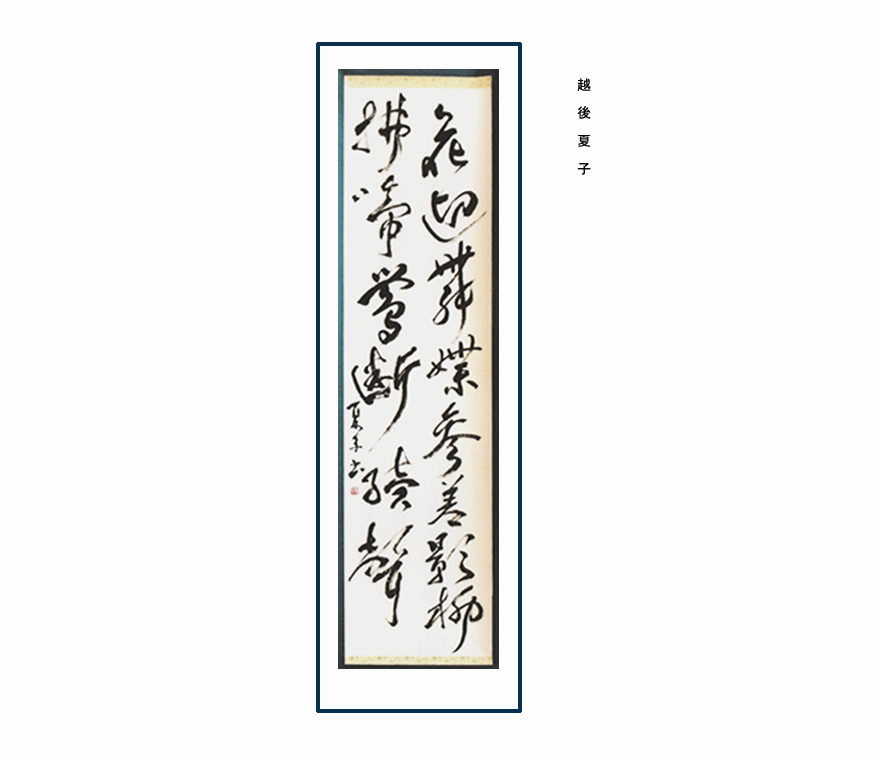 越後夏子
花迎舞蝶參差影柳
拂啼鶯斷續聲
夏子書